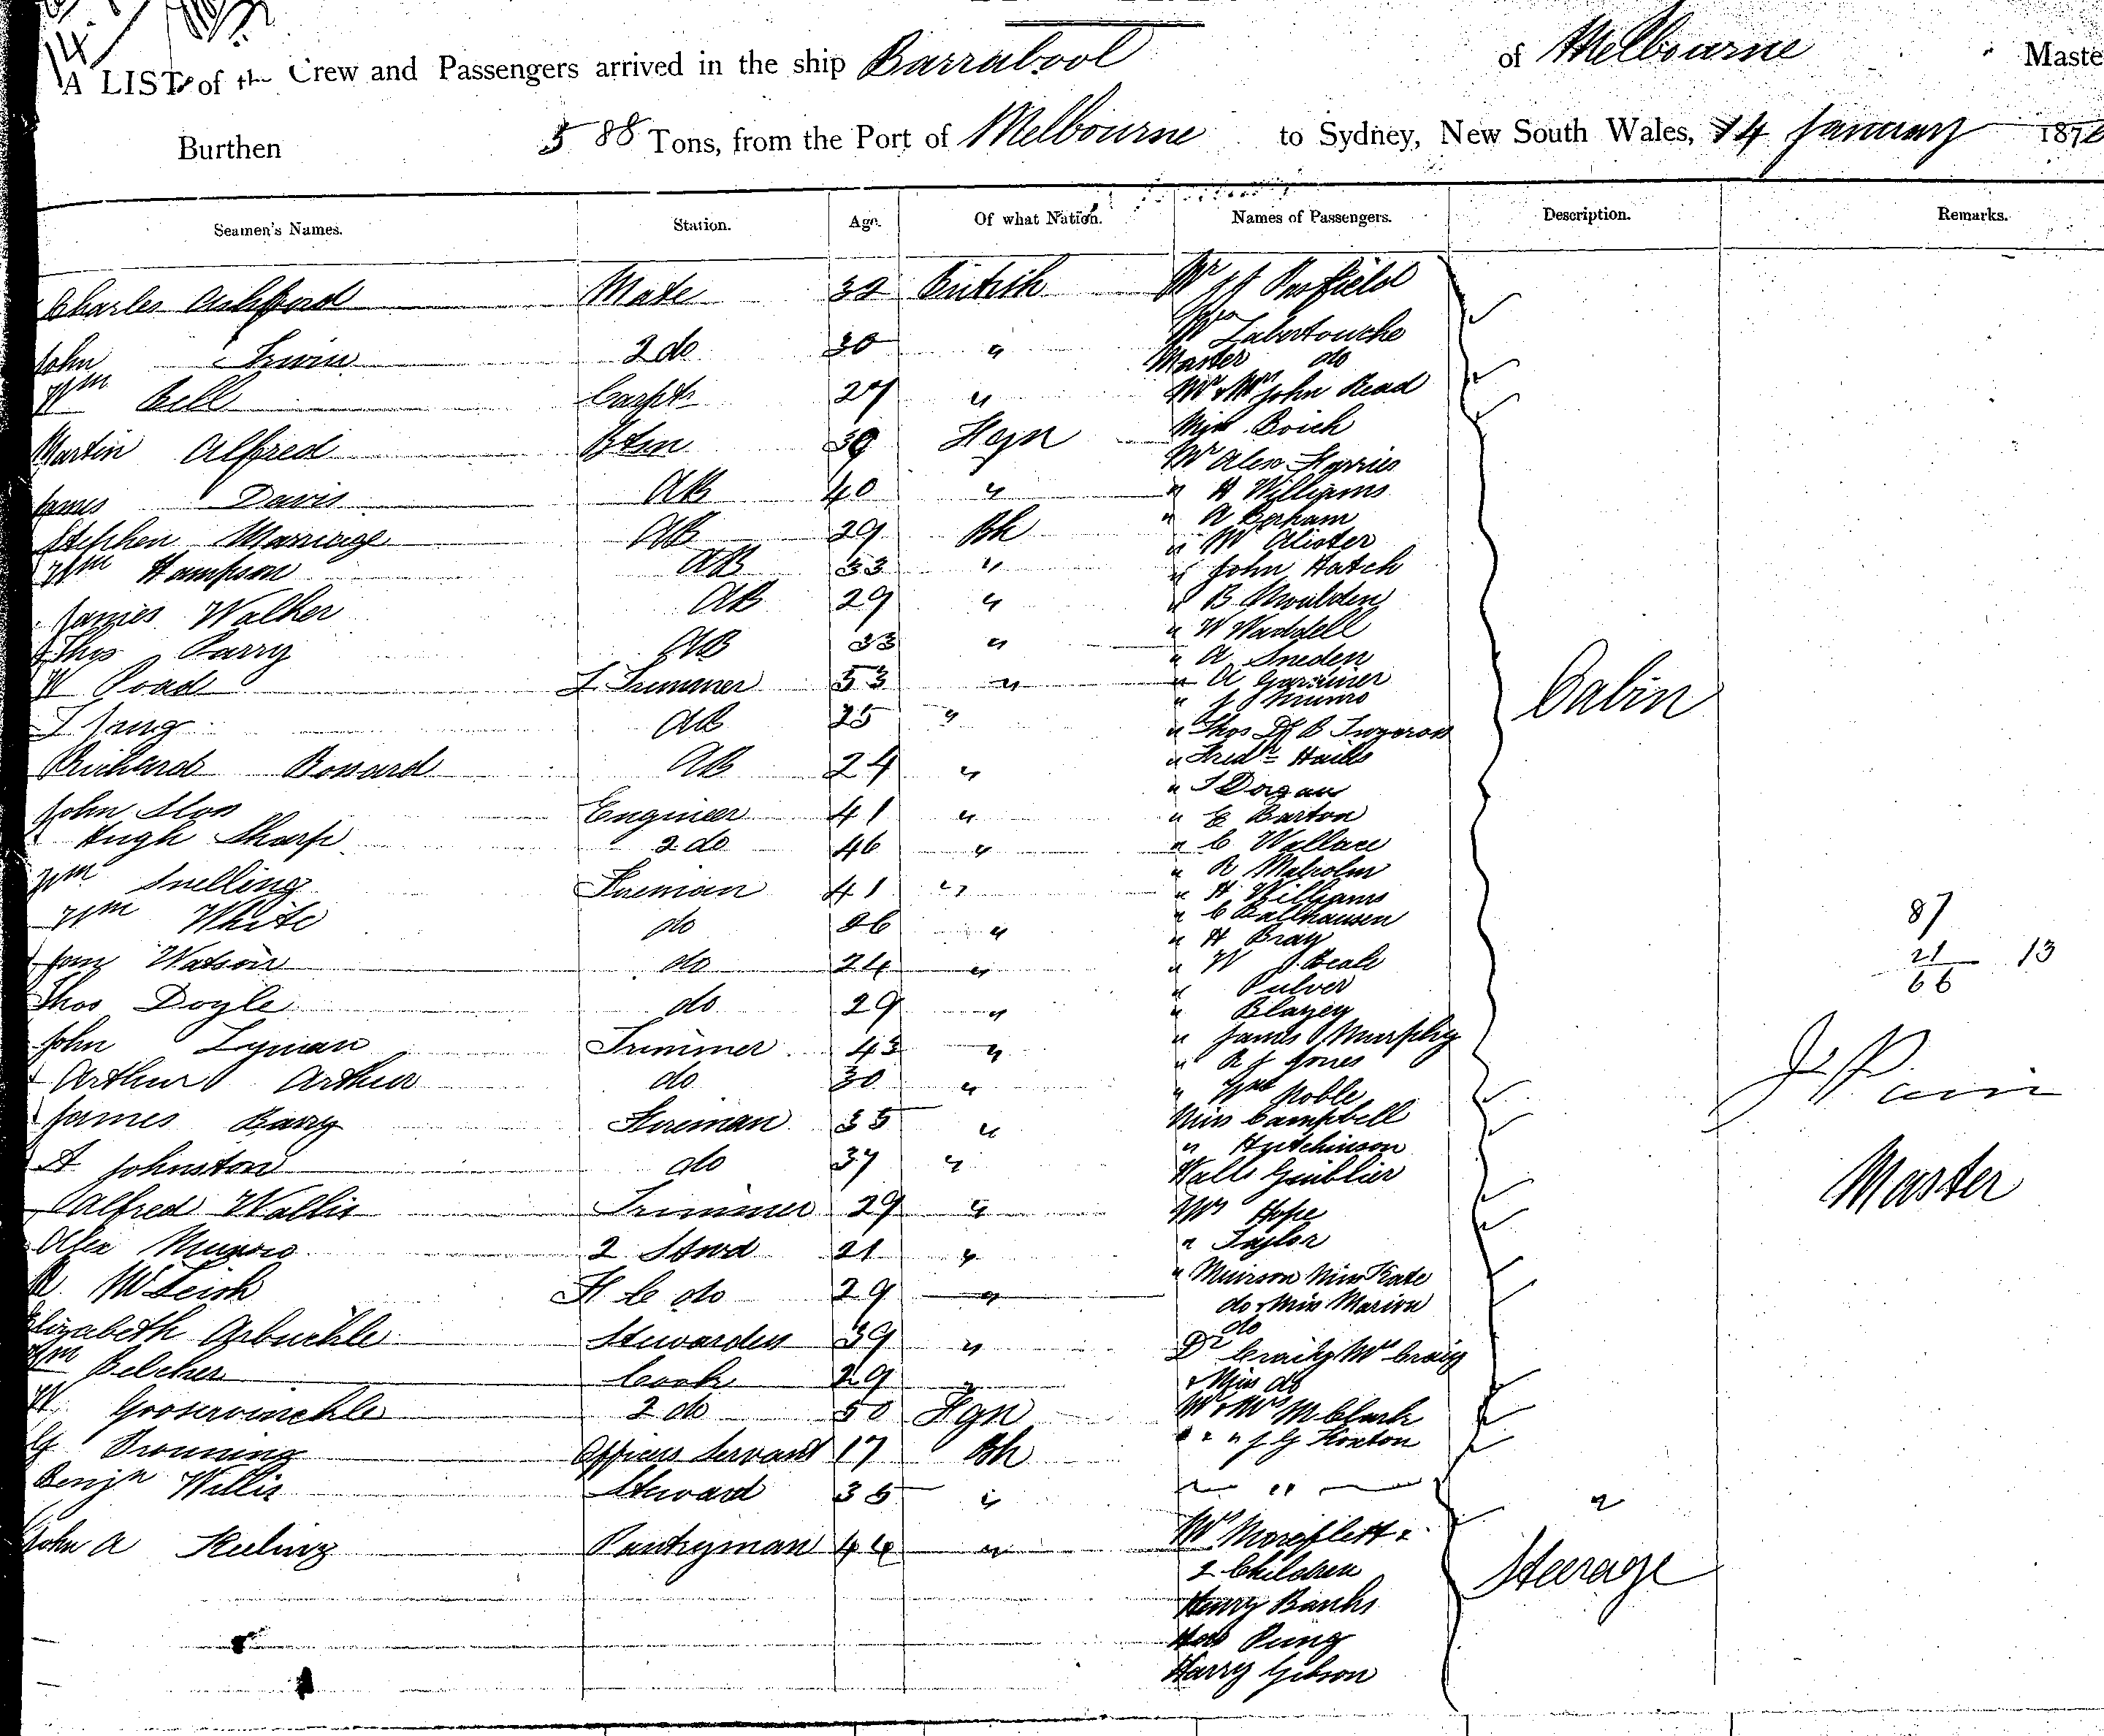 A LIST of the Crew and Passengers arrived in the ship Barrabool of Melbourne Maste
Burthen 588 Tons, from the Port of Melbourne to Sydney, New South Wales, 14 January 187
Seamen's Names. Station. Age. Of what Nation. Names of Passengers. Description. Remarks.
Charles Ashford Mate 32 British Mr
John Irwin 2 do 30 " Mrs Labertouche
Master do
Wm Bell Carptr 27 " Mr & Mrs John Read
Martin Alfred Btsn 39 Fgn Miss Boich
Mr Alex
James Davis AB 40 " " H Williams
Stephen Marriage AB 29 Bh " A
" Mc Alister
Wm Hampson AB 33 " " John Hatch
James Walker AB 29 " " B Moulden
Thos Parry AB 33 " " W Waddell
" A Sneden
W Poad L Trimmer 53 " " A Gardiner
" J Munro
AB 25 " " Thos
Richard Bossard AB 24 " " Fredk
" T Dorgan
John Engineer 41 " " E Barton
Hugh Sharp 2 do 46 " " C Wallace
" R Malcolm
Wm Snelling Fireman 41 " " H Williams
Wm White do 26 " " C Ballhausen
" H Bray
Watson do 24 " " W J Beale
Thos Doyle do 29 " " Pulver
" Blazey
John Lyman Trimmer 43 " " James Murphy
" R J Jones
Arthur Arthur do 30 " " Wm Noble
James Barry Fireman 35 " Miss Campbell
" Hutchinson
A Johnston do 37 "
Alfred Wallis Trimmer 29 " Mrs Hope
Alex Munro 2 Stwd 21 " " Taylor
R McLeish F C do 29 " " Muirson Miss Kate
do & Miss Marion
do
Elizabeth Arbuckle Stewardess 39 " Dr Craig Mrs Craig
Wm Belcher Cook 29 " & Miss do
W 2 do 50 Fgn Mr & Mrs M Clark
G Officers Servant 17 Bh " " " J G
Benjn Willis Steward 35 " "
John A Keeling Pantryman 44 " Mrs
2 Children
Henry Banks
Pung
Harry Gibson
Cabin
"
Steerage
87
21 13
66
Master